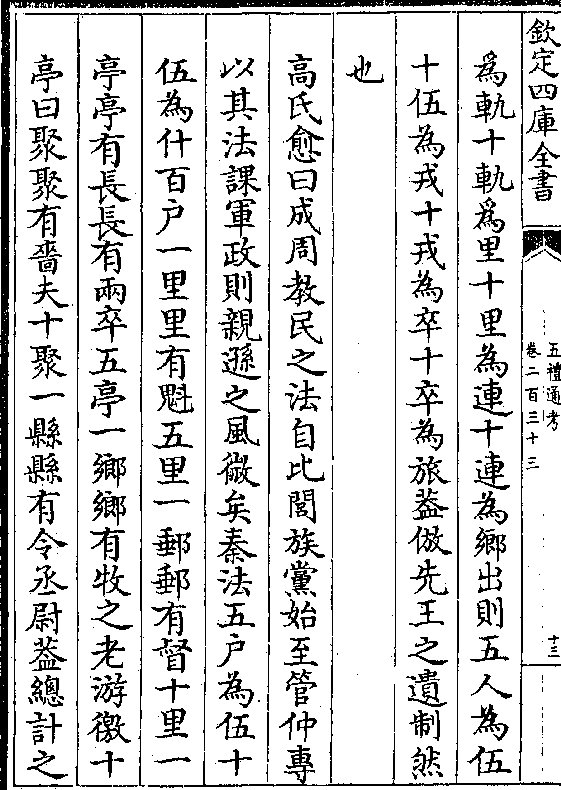 欽定四庫全書
五禮通考
卷二百三十三
十三
為軌十軌為里十里為連十連為鄉出則五人為伍
十伍為戎十戎為卒十卒為旅葢倣先王之遺制然
也
高氏愈曰成周教民之法自比閭族黨始至管仲專
以其法課軍政則親遜之風微矣秦法五户為伍十
伍為什百户一里里有魁五里一郵郵有督十里一
亭亭有長長有兩卒五亭一鄉鄉有牧之老游徼十
亭曰聚聚有嗇夫十聚一縣縣有令丞尉葢總計之